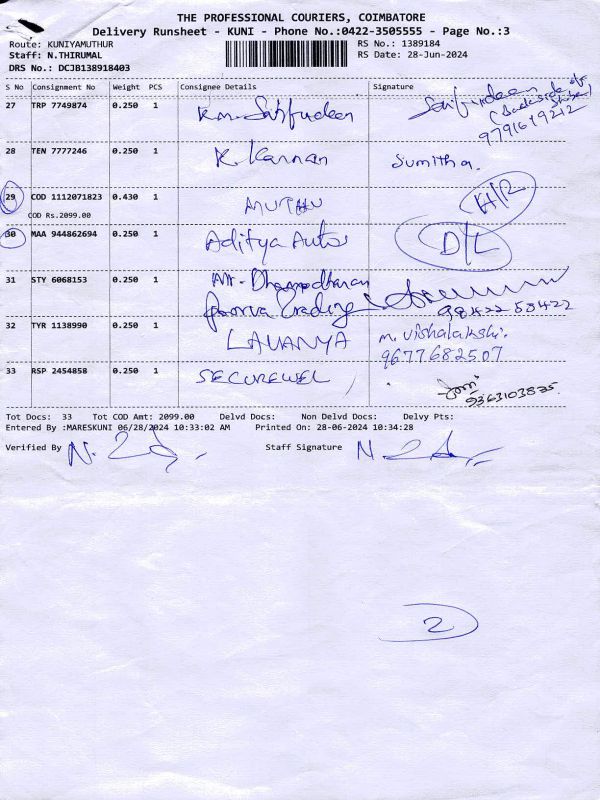 THE PROFESSIONAL COURIERS, COIMBATORE
Delivery Runsheet - KUNI - Phone No.:0422-3505555 - Page No.:3
Route: KUNIYAMUTHUR
RS No.: 1389184
Staff: N.THIRUMAL
RS Date: 28-Jun-2024
DRS No.: DCJB138918403
S No Consignment No Weight PCS Consignee Details Signature
27 TRP 7749874 0.250 1
(Backside of
9791619212
28 TEN 7777246 0.250 1 K. Kannan Sumitha.
29 COD 1112071823 0.430 1 MUTHU H/R
COD Rs.2099.00
30 MAA 944862694 0.250 1 Aditya Auto D/L
31 STY 6068153 0.250 1 Dhamodharan
Poorva Trading 98422 58422
32 TYR 1138990 0.250 1 LAVANYA m. vishalakshi.
9677682507
33 RSP 2454858 0.250 1 SECUREWEL
9363103835
Tot Docs: 33 Tot COD Amt: 2099.00 Delvd Docs: Non Delvd Docs: Delvy Pts:
Entered By :MARESKUNI 06/28/2024 10:33:02 AM Printed On: 28-06-2024 10:34:28
Verified By Staff Signature
2